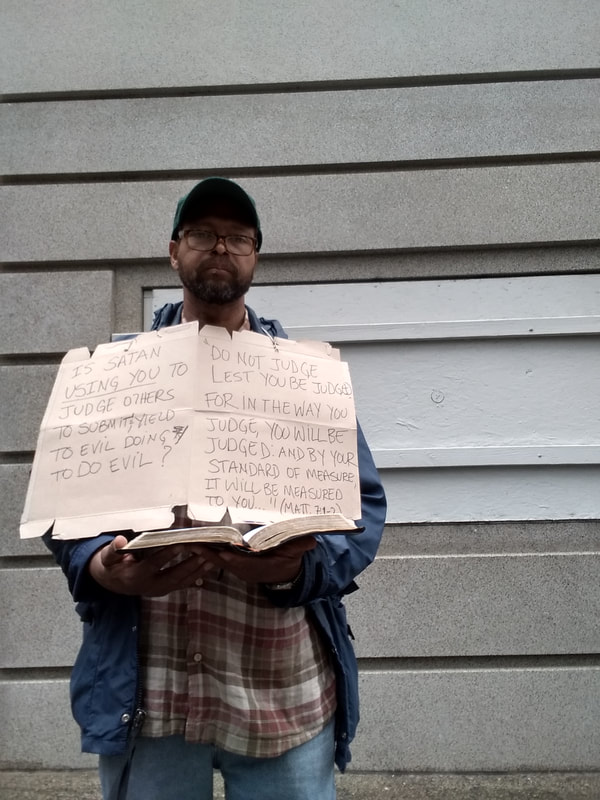 IS SATAN
USING YOU TO
JUDGE OTHERS
TO SUBMIT/YIELD
TO EVIL DOING
TO DO EVIL?
"DO NOT JUDGE
LEST YOU BE JUDGED.
FOR IN THE WAY YOU
JUDGE, YOU WILL BE
JUDGED: AND BY YOUR
STANDARD OF MEASURE,
IT WILL BE MEASURED
TO YOU..." (MATT. 7:1-2)